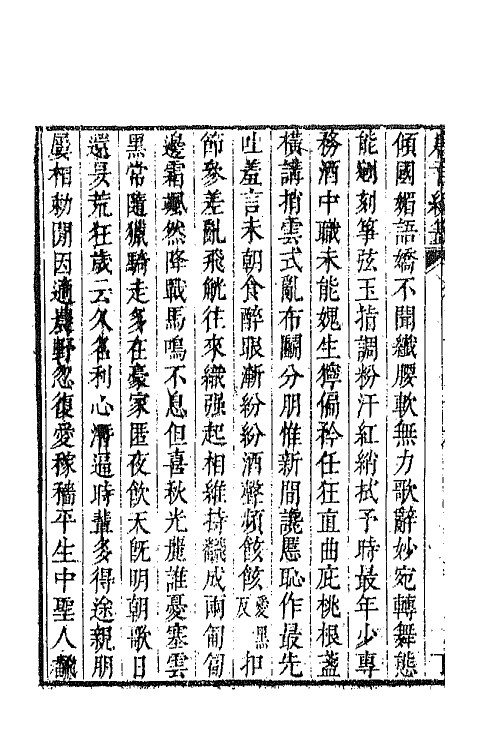 傾國媚語嬌不聞纖腰軟無力歌辭妙宛轉舞態
能剜刻箏弦玉指調粉汗紅綃拭予時最年少專
務酒中職未能愧生獰偏矜任狂直曲庇桃根盞
橫講捎雲式亂布鬬分朋惟新間讒慝恥作最先
吐羞言未朝食醉眼漸紛紛酒聲頻餩餩愛黑反扣
節參差亂飛觥往來織强起相維持翻成兩匍匐
邊霜颯然降戰馬鳴不息但喜秋光麗誰憂塞雲
黑常隨獵騎走多在豪家匿夜飲天旣明朝歌日
還昃荒狂歲云久名利心潛逼時輩多得途親朋
屢相勅閒因適農野忽復愛稼穡平生中聖人翻